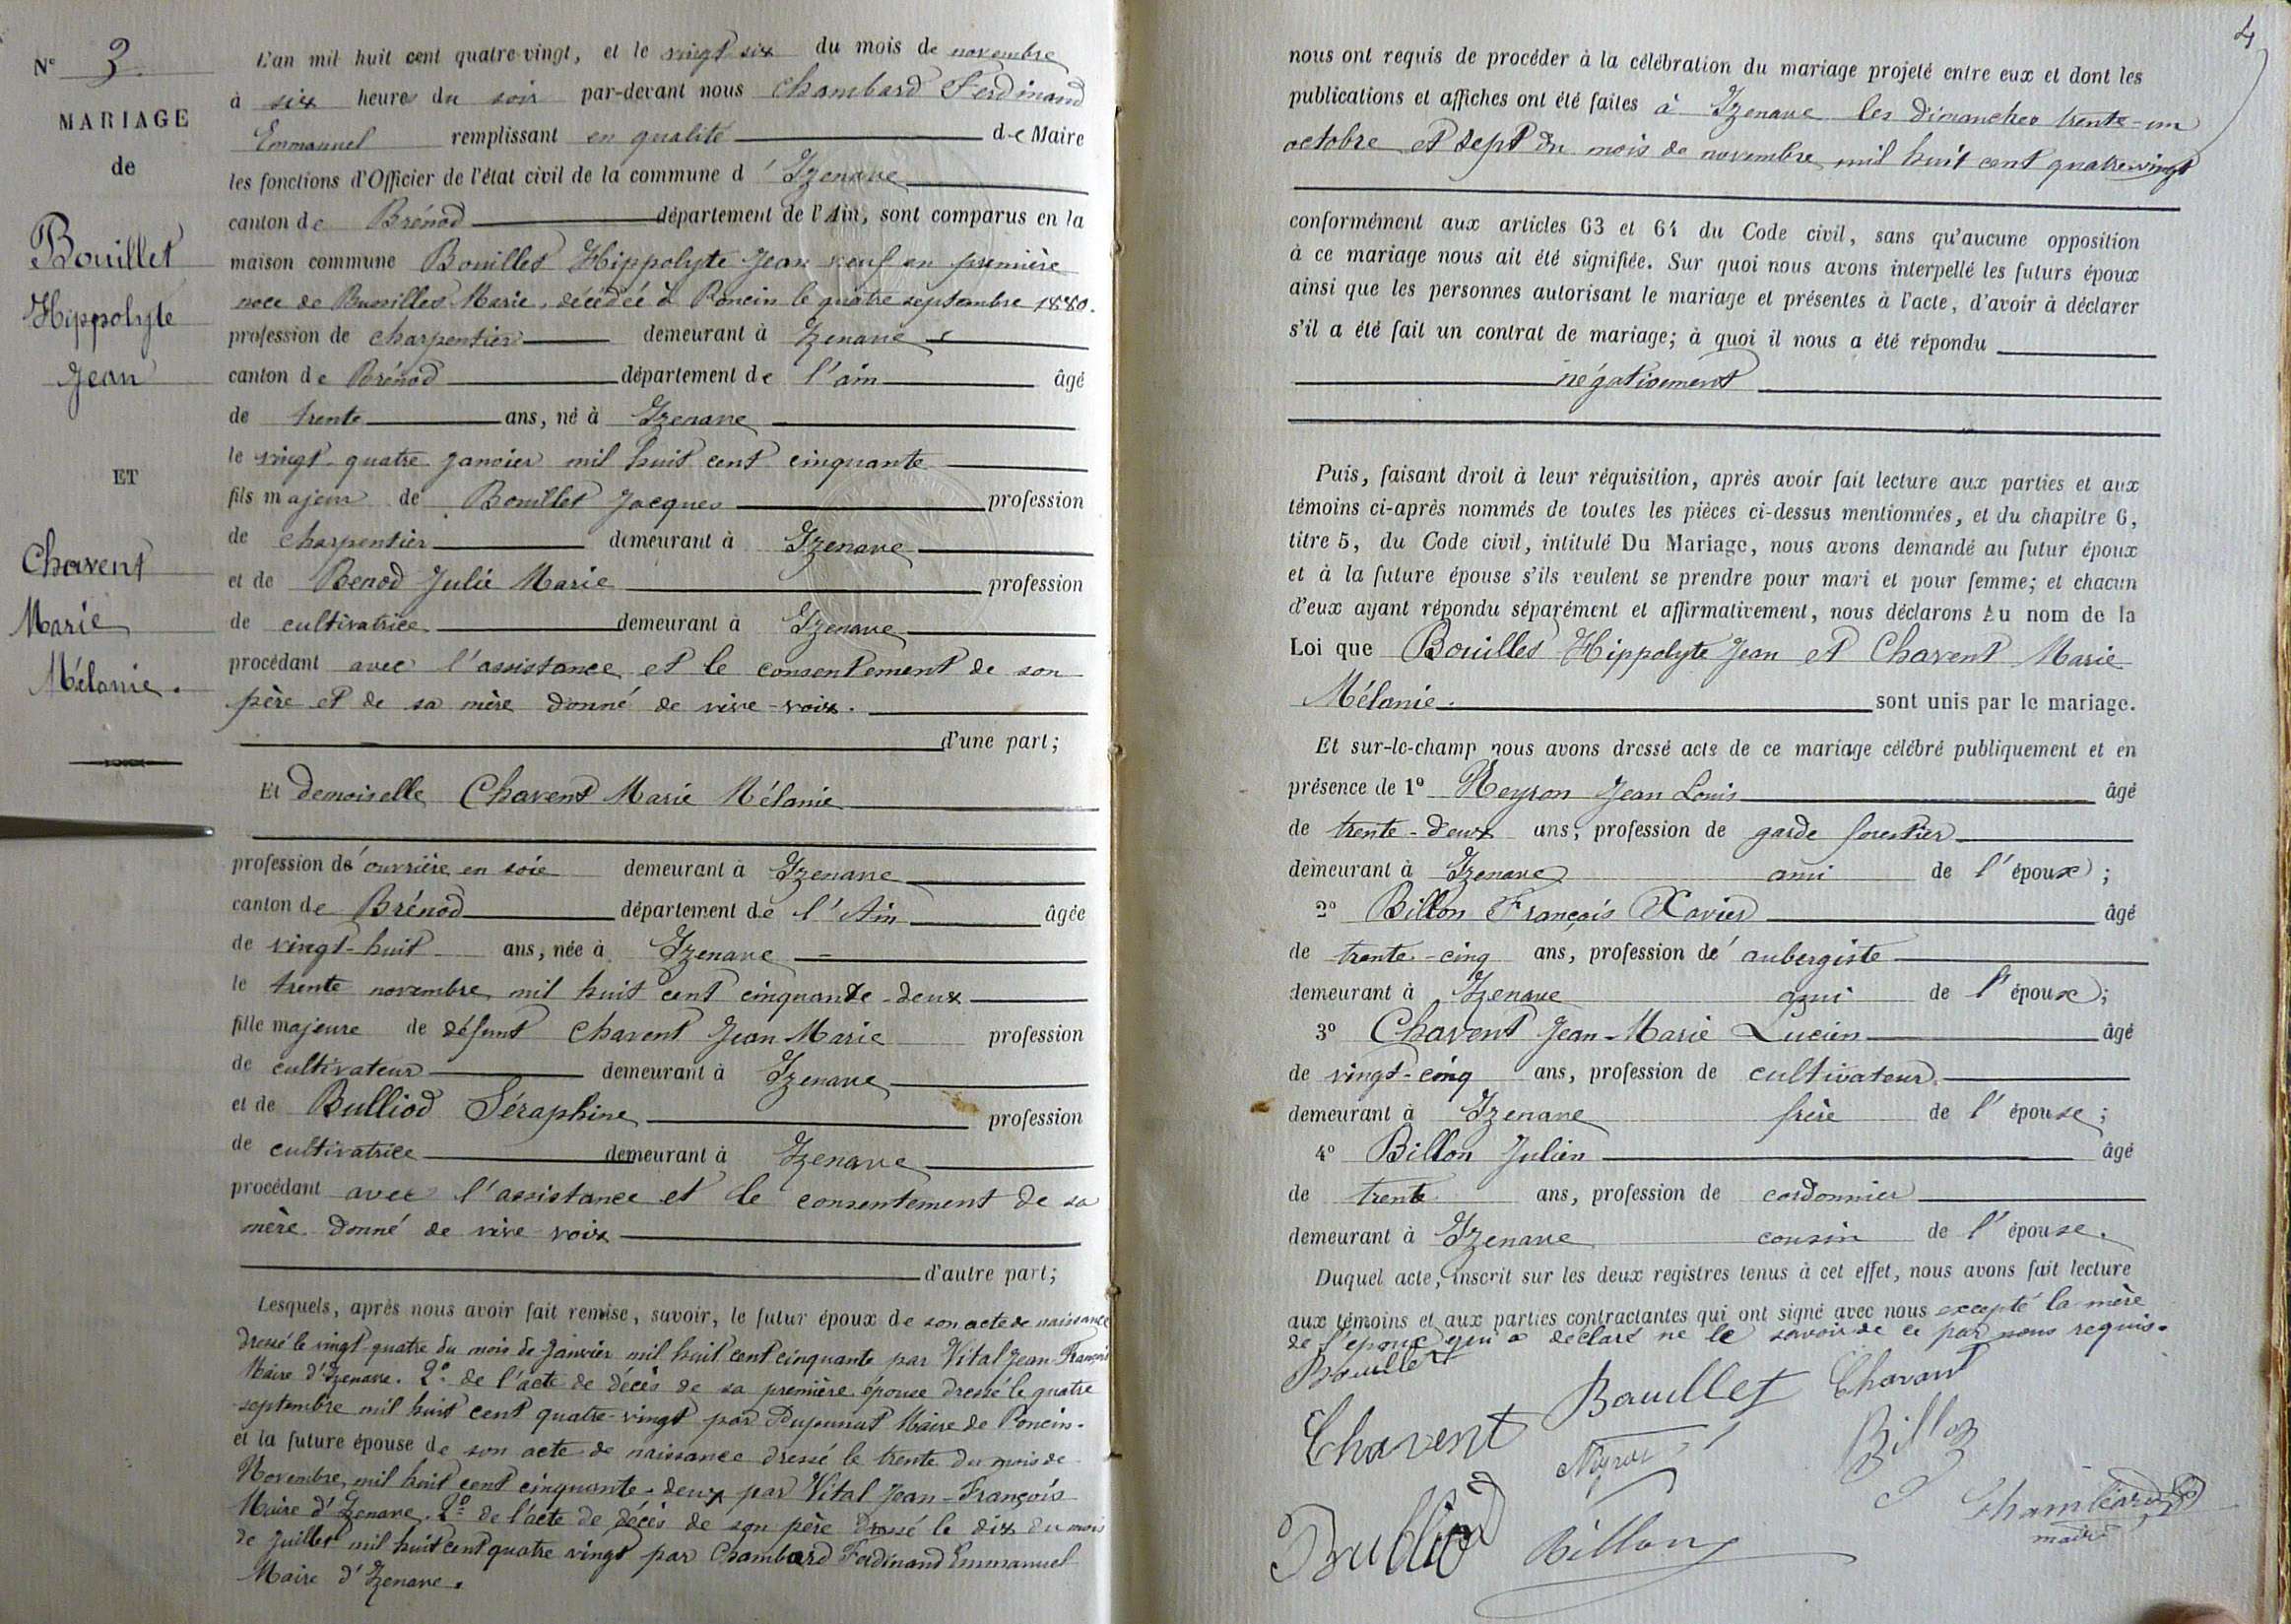 N° 3.
MARIAGE
de
Bouillet
Hippolyte
Jean
ET
Chavent
Marie
Mélanie.
L'an mil huit cent quatre-vingt, et le vingt six du mois de novembre
à six heures du soir par-devant nous Chambard Ferdinand
Emmanuel remplissant en qualité de Maire
les fonctions d'Officier de l'état civil de la commune d'Izenave
canton de Brénod département de l'Ain, sont comparus en la
maison commune Bouillet Hippolyte Jean veuf en première
noce de Marie, décédée à Poncin le quatre septembre 1880.
profession de charpentier demeurant à Izenave
canton de Brénod département de l'ain âgé
de trente ans, né à Izenave
le vingt-quatre janvier mil huit cent cinquante
fils majeur de Bouillet Jacques profession
de charpentier demeurant à Izenave
et de Benod Julie Marie profession
de cultivatrice demeurant à Izenave
procédant avec l'assistance et le consentement de son
père et de sa mère donné de vive-voix.
d'une part;
Et demoiselle Chavent Marie Mélanie
profession d'ouvrière en soie demeurant à Izenave
canton de Brénod département de l'Ain âgée
de vingt-huit ans, née à Izenave
le trente novembre mil huit cent cinquante-deux
fille majeure de défunt Chavent Jean-Marie profession
de cultivateur demeurant à Izenave
et de Bulliod Séraphine profession
de cultivatrice demeurant à Izenave
procédant avec l'assistance et le consentement de sa
mère donné de vive voix
d'autre part;
Lesquels, après nous avoir fait remise, savoir, le futur époux de son acte de naissance
dressé le vingt-quatre du mois de Janvier mil huit cent cinquante par Vital Jean-François
Maire d'Izenave. 2° de l'acte de décès de sa première épouse dressé le quatre
septembre mil huit cent quatre-vingt par Dujourat Maire de Poncin.
et la future épouse de son acte de naissance dressé le trente du mois de
Novembre mil huit cent cinquante-deux par Vital Jean-François
Maire d'Izenave. 2° de l'acte de décès de son père dressé le dix du mois
de Juillet mil huit cent quatre vingt par Chambard Ferdinand Emmanuel
Maire d'Izenave.
4
nous ont requis de procéder à la célébration du mariage projeté entre eux et dont les
publications et affiches ont été faites à Izenave les dimanches trente-un
octobre et sept du mois de novembre mil huit cent quatre vingt
conformément aux articles 63 et 64 du Code civil, sans qu'aucune opposition
à ce mariage nous ait été signifiée. Sur quoi nous avons interpellé les futurs époux
ainsi que les personnes autorisant le mariage et présentes à l'acte, d'avoir à déclarer
s'il a été fait un contrat de mariage; à quoi il nous a été répondu
négativement
Puis, faisant droit à leur réquisition, après avoir fait lecture aux parties et aux
témoins ci-après nommés de toutes les pièces ci-dessus mentionnées, et du chapitre 6,
titre 5, du Code civil, intitulé Du Mariage, nous avons demandé au futur époux
et à la future épouse s'ils veulent se prendre pour mari et pour femme; et chacun
d'eux ayant répondu séparément et affirmativement, nous déclarons Au nom de la
Loi que Bouillet Hippolyte Jean et Chavent Marie
Mélanie. sont unis par le mariage.
Et sur-le-champ nous avons dressé acte de ce mariage célébré publiquement et en
présence de 1° Neyron Jean Louis âgé
de trente-deux ans, profession de garde forestier
demeurant à Izenave ami de l'époux;
2° Billon François Xavier âgé
de trente-cinq ans, profession d'aubergiste
demeurant à Izenave ami de l'époux;
3° Chavent Jean-Marie Lucien âgé
de vingt-cinq ans, profession de cultivateur
demeurant à Izenave frère de l'épouse;
4° Billon Julien âgé
de trente ans, profession de cordonnier
demeurant à Izenave cousin de l'épouse.
Duquel acte, inscrit sur les deux registres tenus à cet effet, nous avons fait lecture
aux témoins et aux parties contractantes qui ont signé avec nous excepté la mère
de l'époux qui a déclaré ne le savoir de ce par nous requis.
Bouillet
Bouillet Chavant
Chavent Neyron Billon
Bulliod Billon Chambard
maire